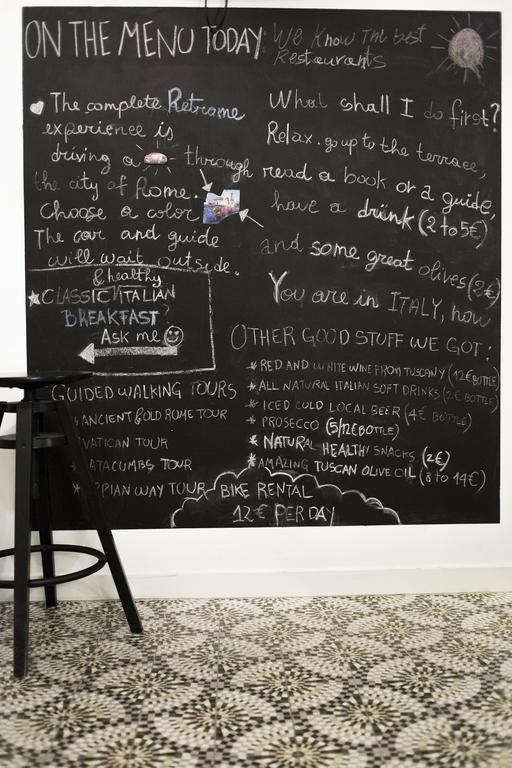 ON THE MENU TODAY
We Know The best
Restaurants
The complete Retrome
experience is
driving a through
the city of Rome.
Choose a color
The car and guide
will wait outside.
& healthy
CLASSIC ITALIAN
BREAKFAST?
Ask me
GUIDED WALKING TOURS
ANCIENT & OLD ROME TOUR
VATICAN TOUR
CATACOMBS TOUR
APPIAN WAY TOUR
BIKE RENTAL
12€ PER DAY
What shall I do first?
Relax. go up to the terrace,
read a book or a guide,
have a drink (2 to 5€)
and some great olives (2€)
You are in ITALY, now
OTHER GOOD STUFF WE GOT:
* RED AND WHITE WINE FROM TUSCANY (12€ BOTTLE)
* ALL NATURAL ITALIAN SOFT DRINKS (2€ BOTTLE)
* ICED COLD LOCAL BEER (4€ BOTTLE)
* PROSECCO (5/12€ BOTTLE)
* NATURAL HEALTHY SNACKS (2€)
* AMAZING TUSCAN OLIVE OIL (8 to 14€)